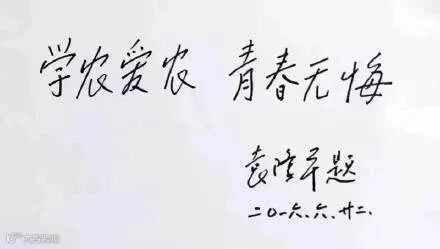 学农爱农 青春无悔
袁隆平题
二〇一六.六.廿二.
大西北网